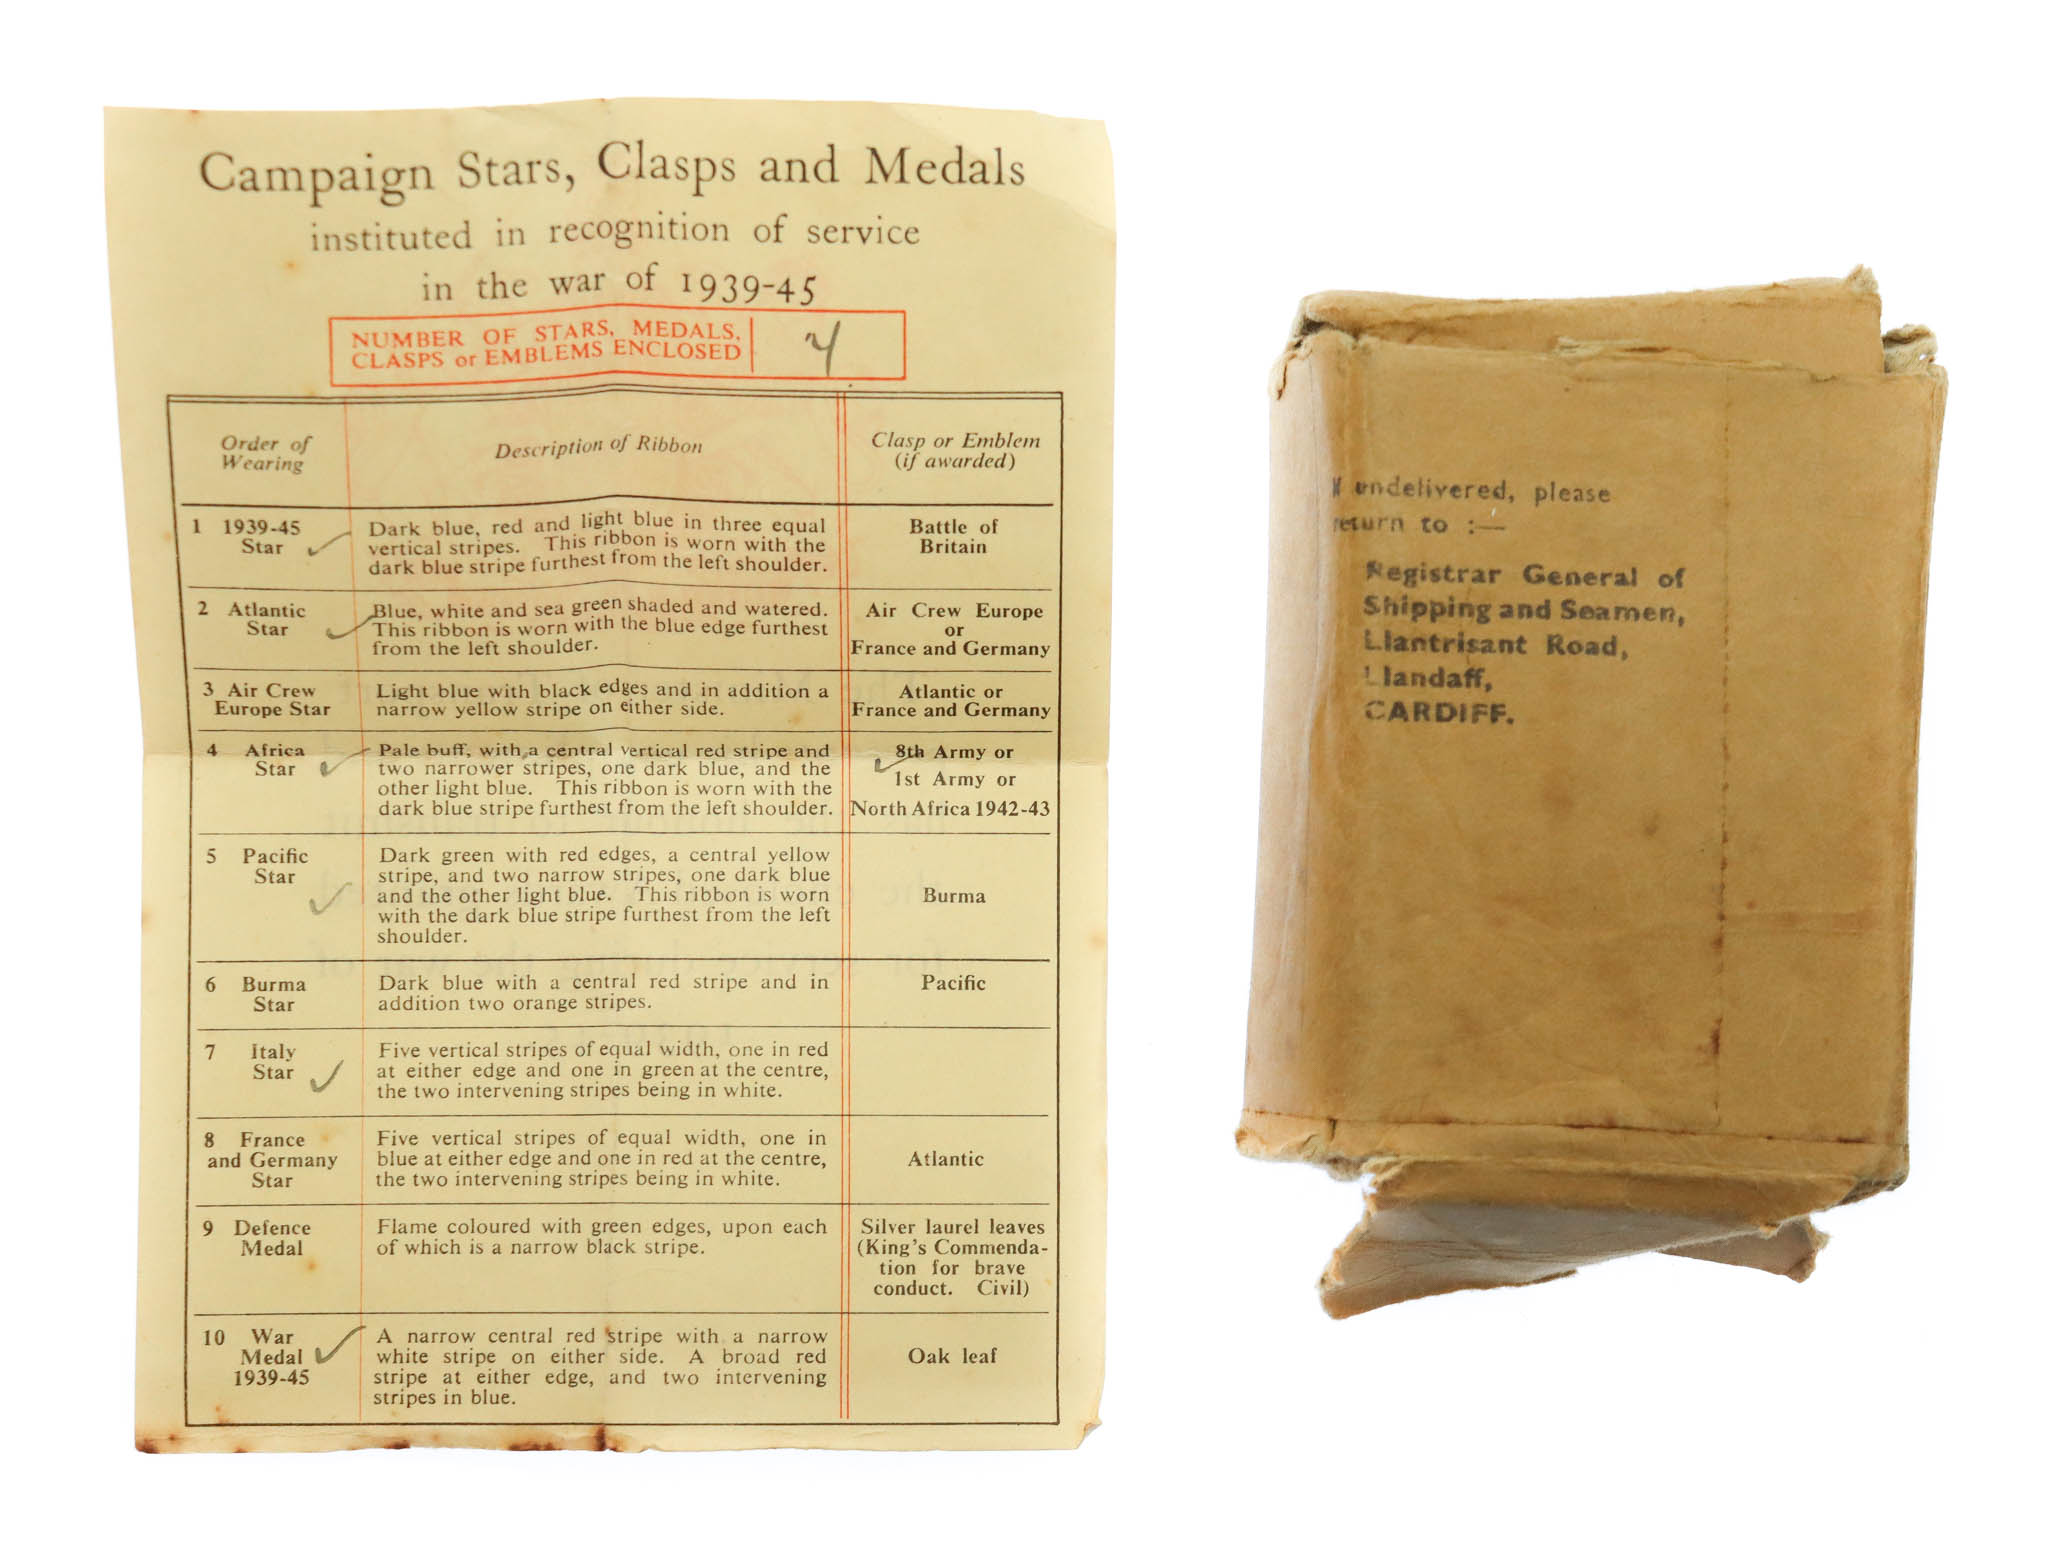 Campaign Stars, Clasps and Medals
instituted in recognition of service
in the war of 1939-45
NUMBER OF STARS, MEDALS,
CLASPS or EMBLEMS ENCLOSED 7
Order of Wearing
Description of Ribbon
Clasp or Emblem
(if awarded)
1 1939-45
Star
Dark blue, red and light blue in three equal
vertical stripes. This ribbon is worn with the
dark blue stripe furthest from the left shoulder.
Battle of
Britain
2 Atlantic
Star
Blue, white and sea green shaded and watered.
This ribbon is worn with the blue edge furthest
from the left shoulder.
Air Crew Europe
or
France and Germany
3 Air Crew
Europe Star
Light blue with black edges and in addition a
narrow yellow stripe on either side.
Atlantic or
France and Germany
4 Africa
Star
Pale buff, with a central vertical red stripe and
two narrower stripes, one dark blue, and the
other light blue. This ribbon is worn with the
dark blue stripe furthest from the left shoulder.
8th Army or
1st Army or
North Africa 1942-43
5 Pacific
Star
Dark green with red edges, a central yellow
stripe, and two narrow stripes, one dark blue
and the other light blue. This ribbon is worn
with the dark blue stripe furthest from the left
shoulder.
Burma
6 Burma
Star
Dark blue with a central red stripe and in
addition two orange stripes.
Pacific
7 Italy
Star
Five vertical stripes of equal width, one in red
at either edge and one in green at the centre,
the two intervening stripes being in white.
8 France
and Germany
Star
Five vertical stripes of equal width, one in
blue at either edge and one in red at the centre,
the two intervening stripes being in white.
Atlantic
9 Defence
Medal
Flame coloured with green edges, upon each
of which is a narrow black stripe.
Silver laurel leaves
(King's Commenda-
tion for brave
conduct. Civil)
10 War
Medal
1939-45
A narrow central red stripe with a narrow
white stripe on either side. A broad red
stripe at either edge, and two intervening
stripes in blue.
Oak leaf
If undelivered, please
return to :—
Registrar General of
Shipping and Seamen,
Llantrisant Road,
Llandaff,
CARDIFF.